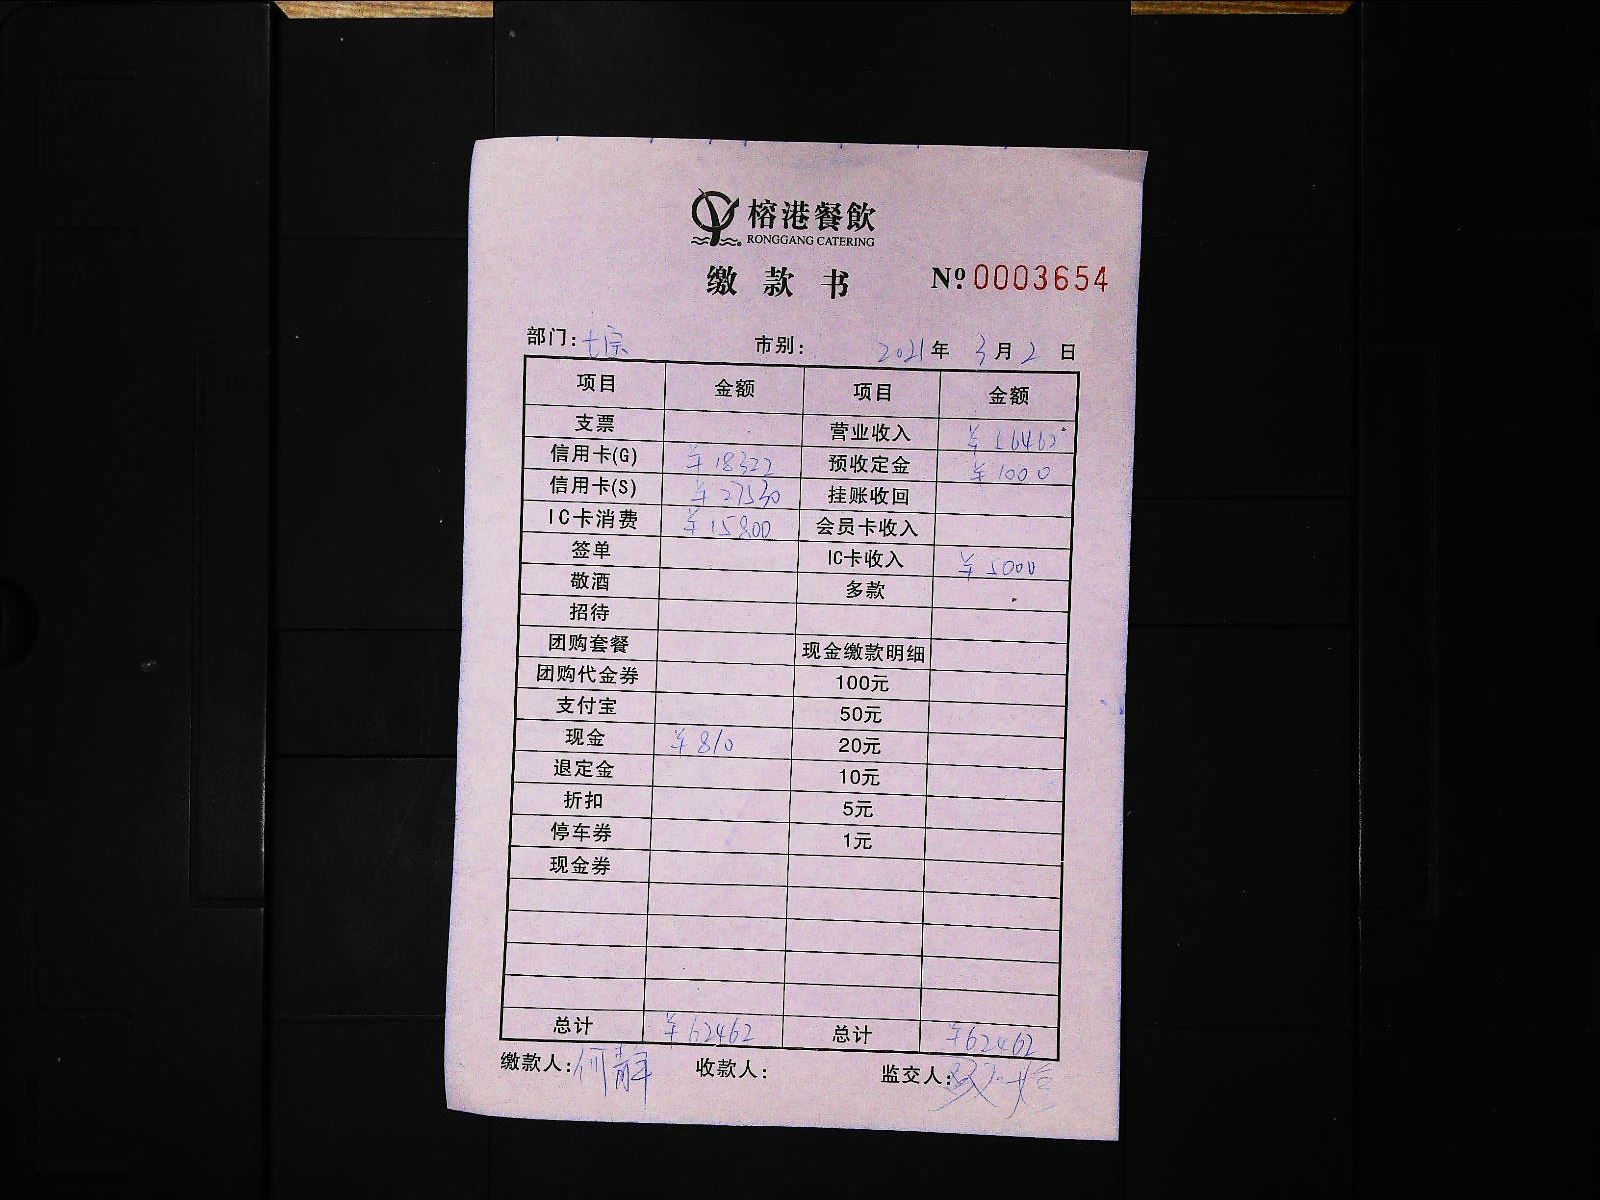 榕港餐飲
RONGGANG CATERING
缴款书 № 0003654
部门: 市别: 2021年 3月 2日
项目 金额 项目 金额
支票 营业收入 ¥56462
信用卡(G) ¥18322 预收定金 ¥1000
信用卡(S) ¥27530 挂账收回
IC卡消费 ¥15800 会员卡收入
签单 IC卡收入 ¥5000
敬酒 多款
招待
团购套餐 现金缴款明细
团购代金券 100元
支付宝 50元
现金 ¥810 20元
退定金 10元
折扣 5元
停车券 1元
现金券
总计 ¥62462 总计 ¥62462
缴款人:何静 收款人: 监交人: